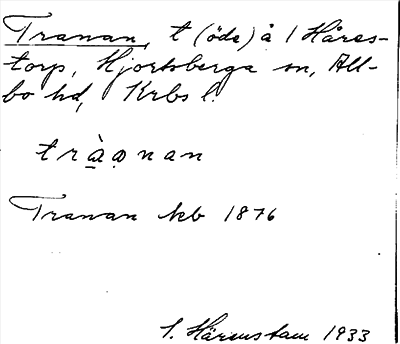 Tranan, t (öde) å 1 Håres-
torp, Hjortsberga sn, All-
bo hd, Krbs l.
tràɷnan
Tranan kb 1876
S. Härenstam 1933